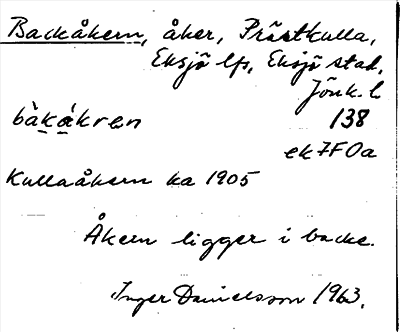 Backåkern, åker, Prästkulla,
Eksjö lfs, Eksjö stad,
Jönk. l
bàkåkren 138
ek 7F0a
Kullaåkern ka 1905
Åkern ligger i backe.
Inger Danielsson 1963.